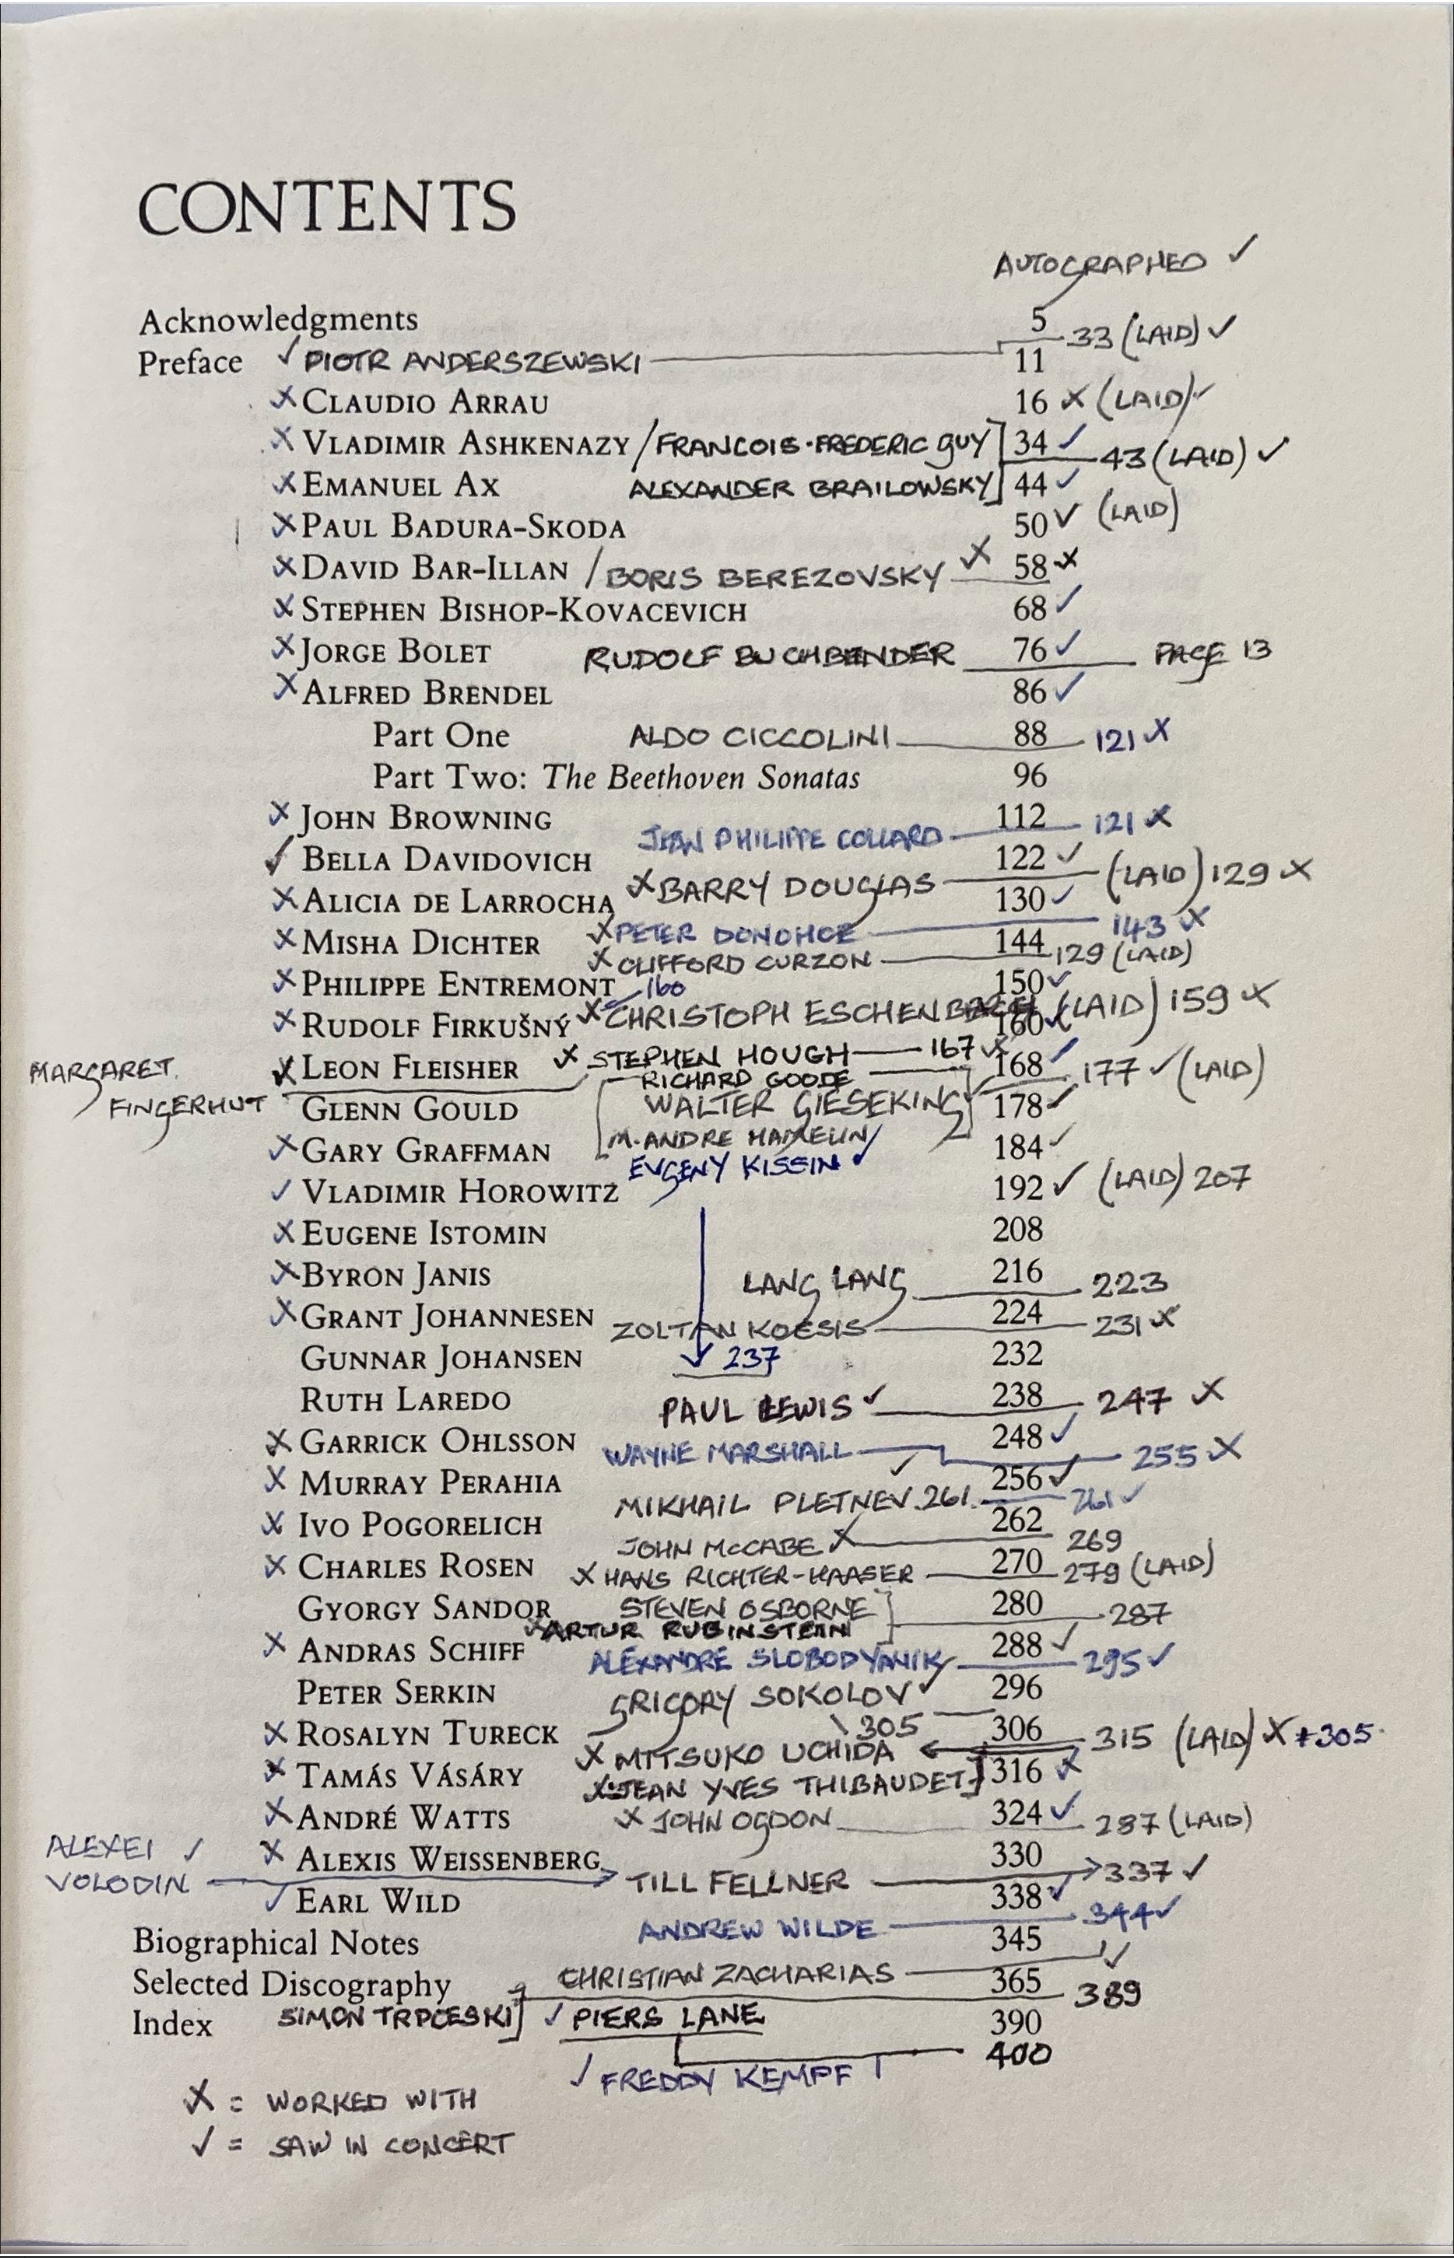 CONTENTS
AUTOGRAPHED ✓
Acknowledgments 5
33 (LAID) ✓
Preface ✓ PIOTR ANDERSZEWSKI 11
✗ CLAUDIO ARRAU 16 ✗ (LAID) ✓
✗ VLADIMIR ASHKENAZY / FRANCOIS-FREDERIC GUY] 34 ✓
43 (LAID) ✓
✗ EMANUEL AX ALEXANDER BRAILOWSKY] 44 ✓
✗ PAUL BADURA-SKODA 50 ✓ (LAID)
✗ DAVID BAR-ILLAN / BORIS BEREZOVSKY ✗ 58 ✗
✗ STEPHEN BISHOP-KOVACEVICH 68 ✓
✗ JORGE BOLET RUDOLF BUCHBENDER 76 ✓ PAGE 13
✗ ALFRED BRENDEL 86 ✓
Part One ALDO CICCOLINI 88 121 ✗
Part Two: The Beethoven Sonatas 96
✗ JOHN BROWNING 112
JEAN PHILIPPE COLLARD 121 ✗
✓ BELLA DAVIDOVICH 122 ✓
✗ BARRY DOUGLAS (LAID) 129 ✗
✗ ALICIA DE LARROCHA 130 ✓
✗ PETER DONOHOE 143 ✗
✗ MISHA DICHTER 144
✗ CLIFFORD CURZON 129 (LAID)
✗ PHILIPPE ENTREMONT 160 150 ✓
✗ RUDOLF FIRKUŠNÝ ✗ CHRISTOPH ESCHENBACH 160 ✓ (LAID) 159 ✗
MARGARET FINGERHUT
✗ LEON FLEISHER ✗ STEPHEN HOUGH 167 ✗ 168 ✓
RICHARD GOODE 177 ✓ (LAID)
GLENN GOULD WALTER GIESEKING 178 ✓
M. ANDRE HAMELIN
✗ GARY GRAFFMAN 184 ✓
EVGENY KISSIN ✓
✓ VLADIMIR HOROWITZ 192 ✓ (LAID) 207
✗ EUGENE ISTOMIN 208
✗ BYRON JANIS LANG LANG 216 223
✗ GRANT JOHANNESEN ZOLTAN KOESIS 224 231 ✗
GUNNAR JOHANSEN 237 232
RUTH LAREDO PAUL LEWIS ✓ 238 247 ✗
✗ GARRICK OHLSSON WAYNE MARSHALL 248 ✓ 255 ✗
✗ MURRAY PERAHIA 256 ✓
✓ MIKHAIL PLETNEV. 261 261 ✓
✗ IVO POGORELICH 262
JOHN McCABE ✗ 269
✗ CHARLES ROSEN ✗ HANS RICHTER-HAASER 270 279 (LAID)
GYORGY SANDOR STEVEN OSBORNE] 280 287
✗ ARTUR RUBINSTEIN
✗ ANDRAS SCHIFF 288 ✓
ALEXANDRE SLOBODYANIK 295 ✓
PETER SERKIN GRIGORY SOKOLOV ✓ 296
305
✗ ROSALYN TURECK 306
✗ MITSUKO UCHIDA 315 (LAID) ✗ + 305
✗ TAMÁS VÁSÁRY ✗ JEAN YVES THIBAUDET] 316 ✗
✗ ANDRÉ WATTS ✗ JOHN OGDON 324 ✓ 287 (LAID)
ALEXEI ✓
VOLODIN
✗ ALEXIS WEISSENBERG 330
TILL FELLNER 337 ✓
✓ EARL WILD 338 ✓
ANDREW WILDE 344 ✓
Biographical Notes 345
Selected Discography CHRISTIAN ZACHARIAS ✓ 365
389
Index SIMON TRPCESKI] ✓ PIERS LANE 390
400
✓ FREDDY KEMPF
✗ = WORKED WITH
✓ = SAW IN CONCERT